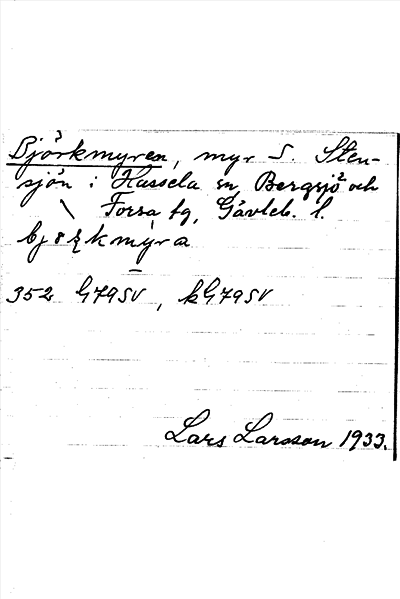 Björkmyren, myr S. Sten-
sjön i Hassela sn, Bergsjö och
Forsa tg, Gävleb. l.
bjørkmýra
352 G79SV, kG79SV
Lars Larsson 1933.